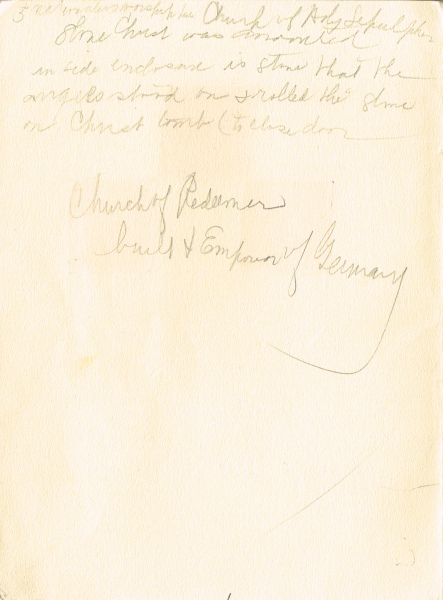 worship in Church of Holy Sepulcher
Stone Christ was annointed
inside enclosure is stone that the
angels stood on & rolled the stone
on Christ tomb (to close door
Church of Redeemer
built & Emperor of Germany